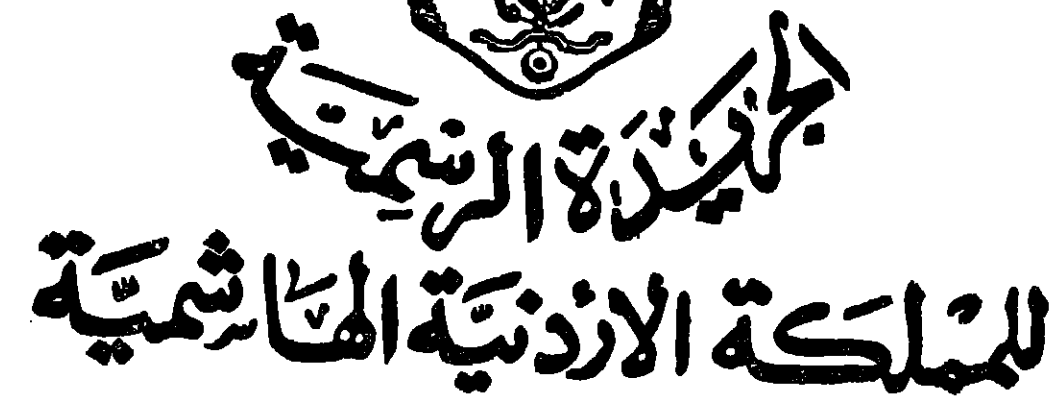 الجريدة الرسمية
للمملكة الاردنية الهاشمية